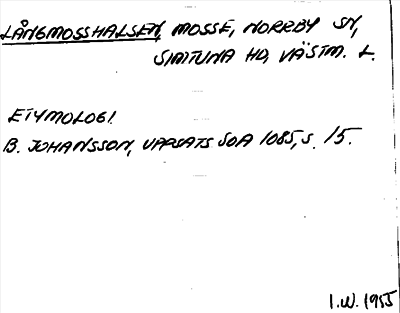 LÅNGMOSSHALSEN, MOSSE, NORRBY SN,
SIMTUNA HD, VÄSTM. L.
ETYMOLOGI.
B. JOHANSSON, UPPSATS SOA 1085, S. 15.
I.W. 1955